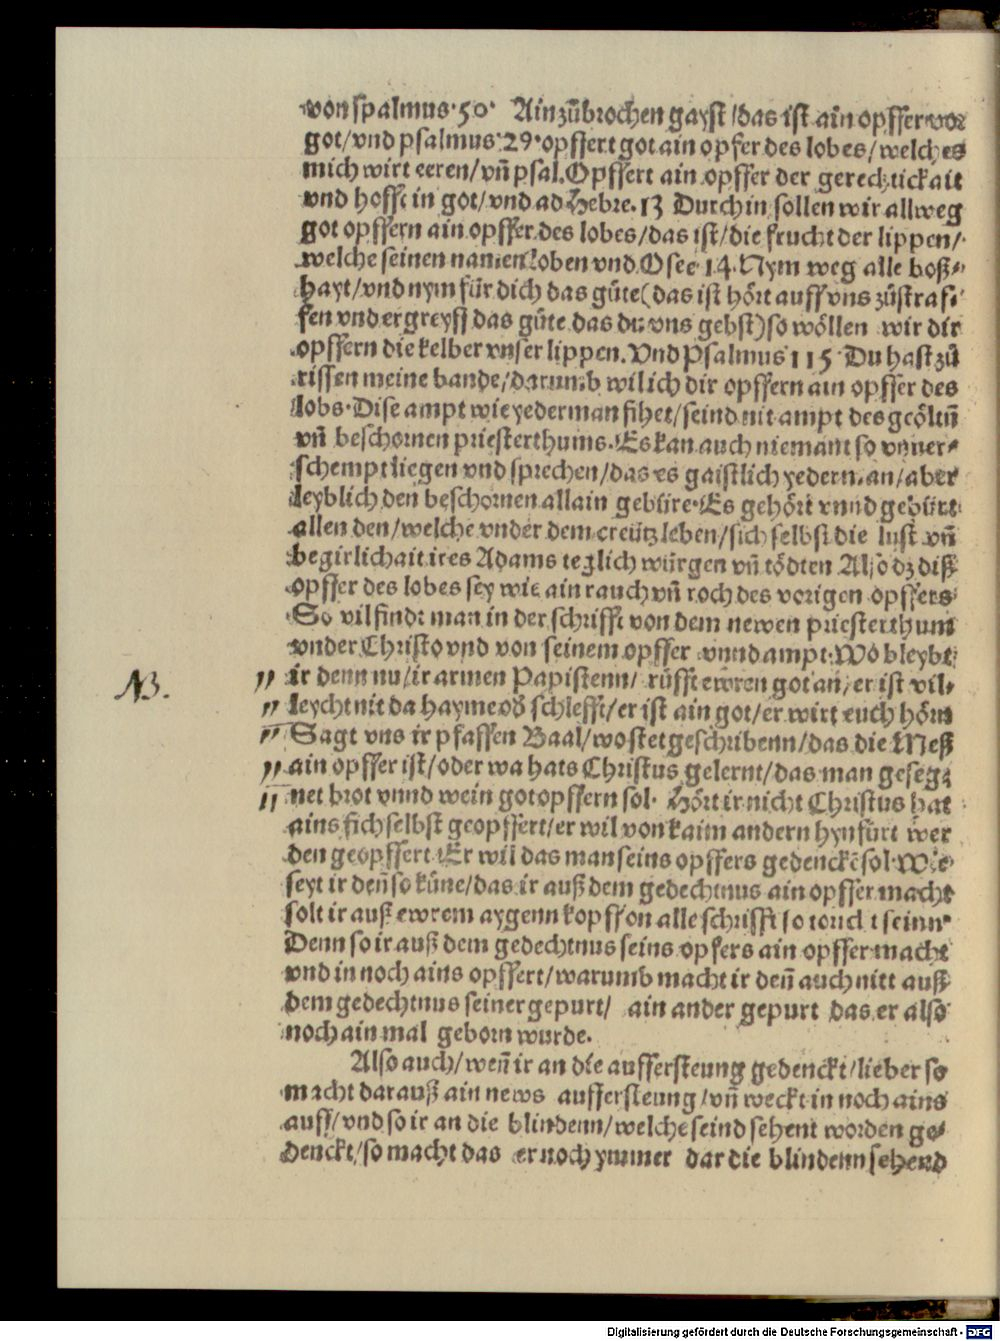 von spalmus·50· Ain zůbrochen gayst/das ist ain opffer vor
got/vnd psalmus·29·opffert got ain opfer des lobes/welches
mich wirt eeren/vñ psal. Opffert ain opffer der gerechtickait
vnd hofft in got/vnd ad Hebre.13 Durch in sollen wir allweg
got opffern ain opffer des lobes/das ist/die frucht der lippen/
welche seinen namen loben vnd Osee 14. Nym weg alle boß⸗
hayt/vnd nym für dich das gůte(das ist hört auff vns zůstraf⸗
fen vnd ergreyff das gůte das du vns gebst)so wöllen wir dir
opffern die kelber vnser lippen. Vnd Psalmus 115 Du hast zů
rissen meine bande/darumb wil ich dir opffern ain opffer des
lobs. Dise ampt wie yederman sihet/seind nit ampt des geöltñ
vñ beschornen priesterthums. Es kan auch niemant so vnuer⸗
schempt liegen vnd sprechen/das es gaistlich yederman/aber
leyblich den beschornen allain gebüre. Es gehört vnnd gebürt
allen den/welche vnder dem creütz leben/sich selbst die lust vñ
begirlichait ires Adams teglich würgen vñ tödten Also dz diß
opffer des lobes sey wie ain rauch vñ roch des vorigen opffers
So vil findt man in der schrifft von dem newen priesterthum
vnder Christo vnd von seinem opffer vnnd ampt. Wo bleybt
NB. ir denn nu/ir armen Papistenn/ růfft ewren got an/er ist vil⸗
leycht nit da hayme oď schlefft/er ist ain got/er wirt euch hörn
Sagt vns ir pfaffen Baal/wo stet geschribenn/das die Meß
ain opffer ist/oder wa hats Christus gelernt/das man geseg⸗
net brot vnnd wein got opffern sol. Hört ir nicht Christus hat
ains sich selbst geopffert/er wil von kaim andern hynfürt wer
den geopffert Er wil das man seins opffers gedenckē sol. Wie
seyt ir deñ so küne/das ir auß dem gedechtnus ain opffer macht
solt ir auß ewrem aygenn kopff on alle schrifft so seinn
Denn so ir auß dem gedechtnus seins opfers ain opffer macht
vnd in noch ains opffert/warumb macht ir deñ auch nitt auß
dem gedechtnus seiner gepurt/ ain ander gepurt das er also
noch ain mal geborn wurde.
Also auch/weñ ir an die aufferstеung gedenckt/lieber so
macht darauß ain news aufferstеung/vñ weckt in noch ains
auff/vnd so ir an die blindenn/welche seind sehent worden ge⸗
denckt/so macht das er noch ymmer dar die blindenn sehend
Digitalisierung gefördert durch die Deutsche Forschungsgemeinschaft - DFG